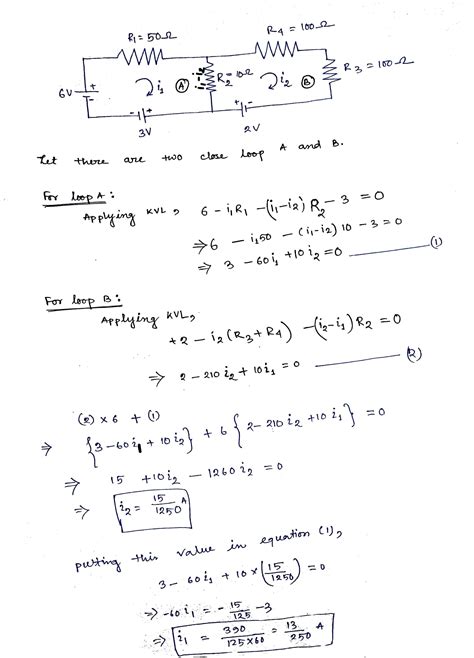 R₁ = 50Ω
R₄ = 100Ω
6V
+
-
i₁
A
R₂ = 10Ω
i₂
B
R₃ = 100Ω
- +
3V
+ -
2V
Let there are two close loop A and B.
For loop A :
Applying KVL, 6 - i₁R₁ - (i₁-i₂) R₂ - 3 = 0
⇒ 6 - i₁50 - (i₁-i₂) 10 - 3 = 0
⇒ 3 - 60i₁ + 10i₂ = 0 ——— (1)
For loop B :
Applying KVL,
+2 - i₂(R₃+R₄) - (i₂-i₁)R₂ = 0
⇒ 2 - 210i₂ + 10i₁ = 0 ——— (2)
(2) × 6 + (1)
⇒ {3-60i₁ + 10i₂} + 6{2-210i₂ + 10i₁} = 0
⇒ 15 + 10i₂ - 1260i₂ = 0
⇒ i₂ = 15/1250 A
putting this value in equation (1),
3 - 60i₁ + 10 × (15/1250) = 0
⇒ -60i₁ = - 15/125 - 3
⇒ i₁ = 390/125×60 = 13/250 A